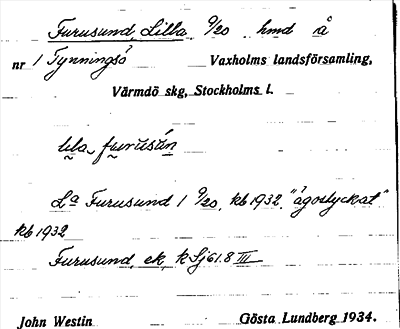 Furusund, Lilla 9/20 hmd å
nr 1 Tynningsö Vaxholms landsförsamling,
Värmdö skg, Stockholms l.
lila furusún
La Furusund 1 9/20, kb 1932 "ägostyckat"
kb 1932
Furusund, ek, k Sj 61.8 III
John Westin Gösta Lundberg 1934.